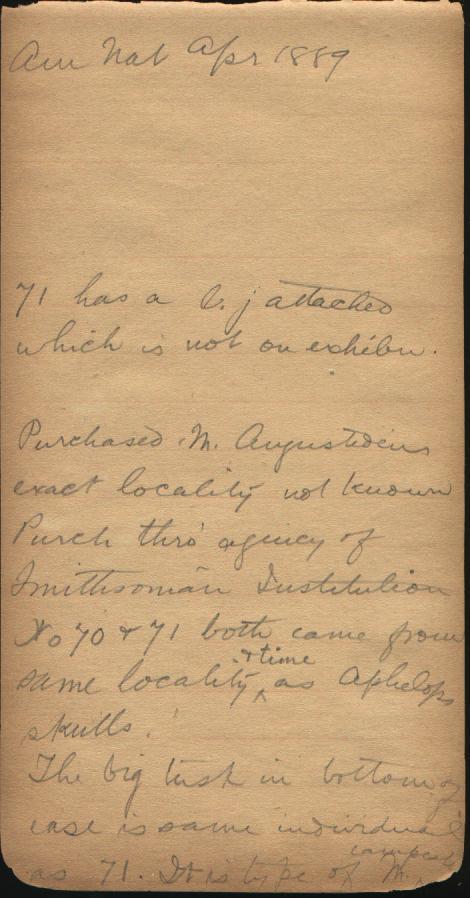 Am Nat Apr 1889
71 has a l. j attached
which is not on exhibn.
Purchased M. Angustidens
exact locality not known
Purch thro' agency of
Smithsonian Institution
No 70 & 71 both came from
same locality & time as Aphelops
skulls.
The big tusk in bottom of
case is same individual
as 71. It is type of M. campest